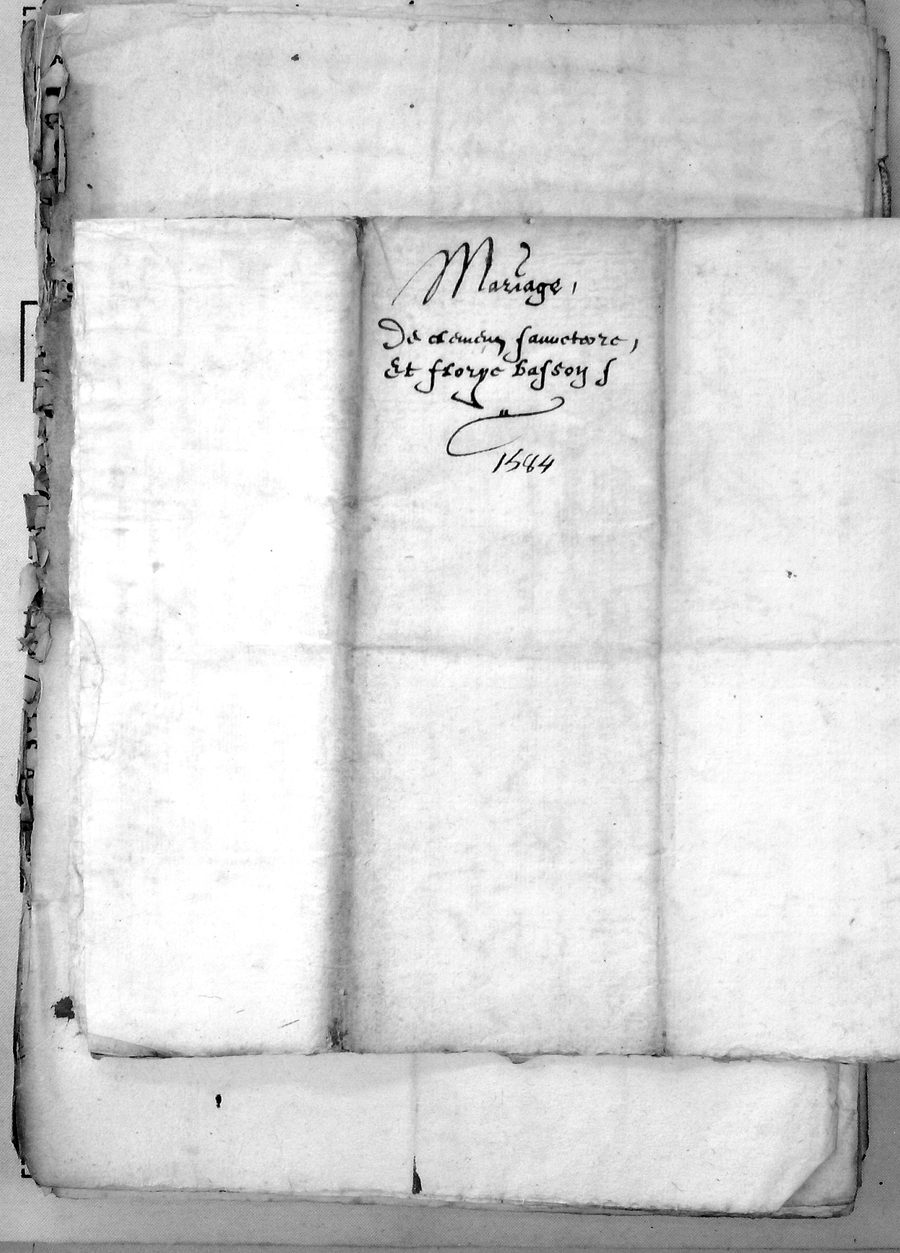 Mariage,
De clemen sauueterre,
Et florye basson
1584